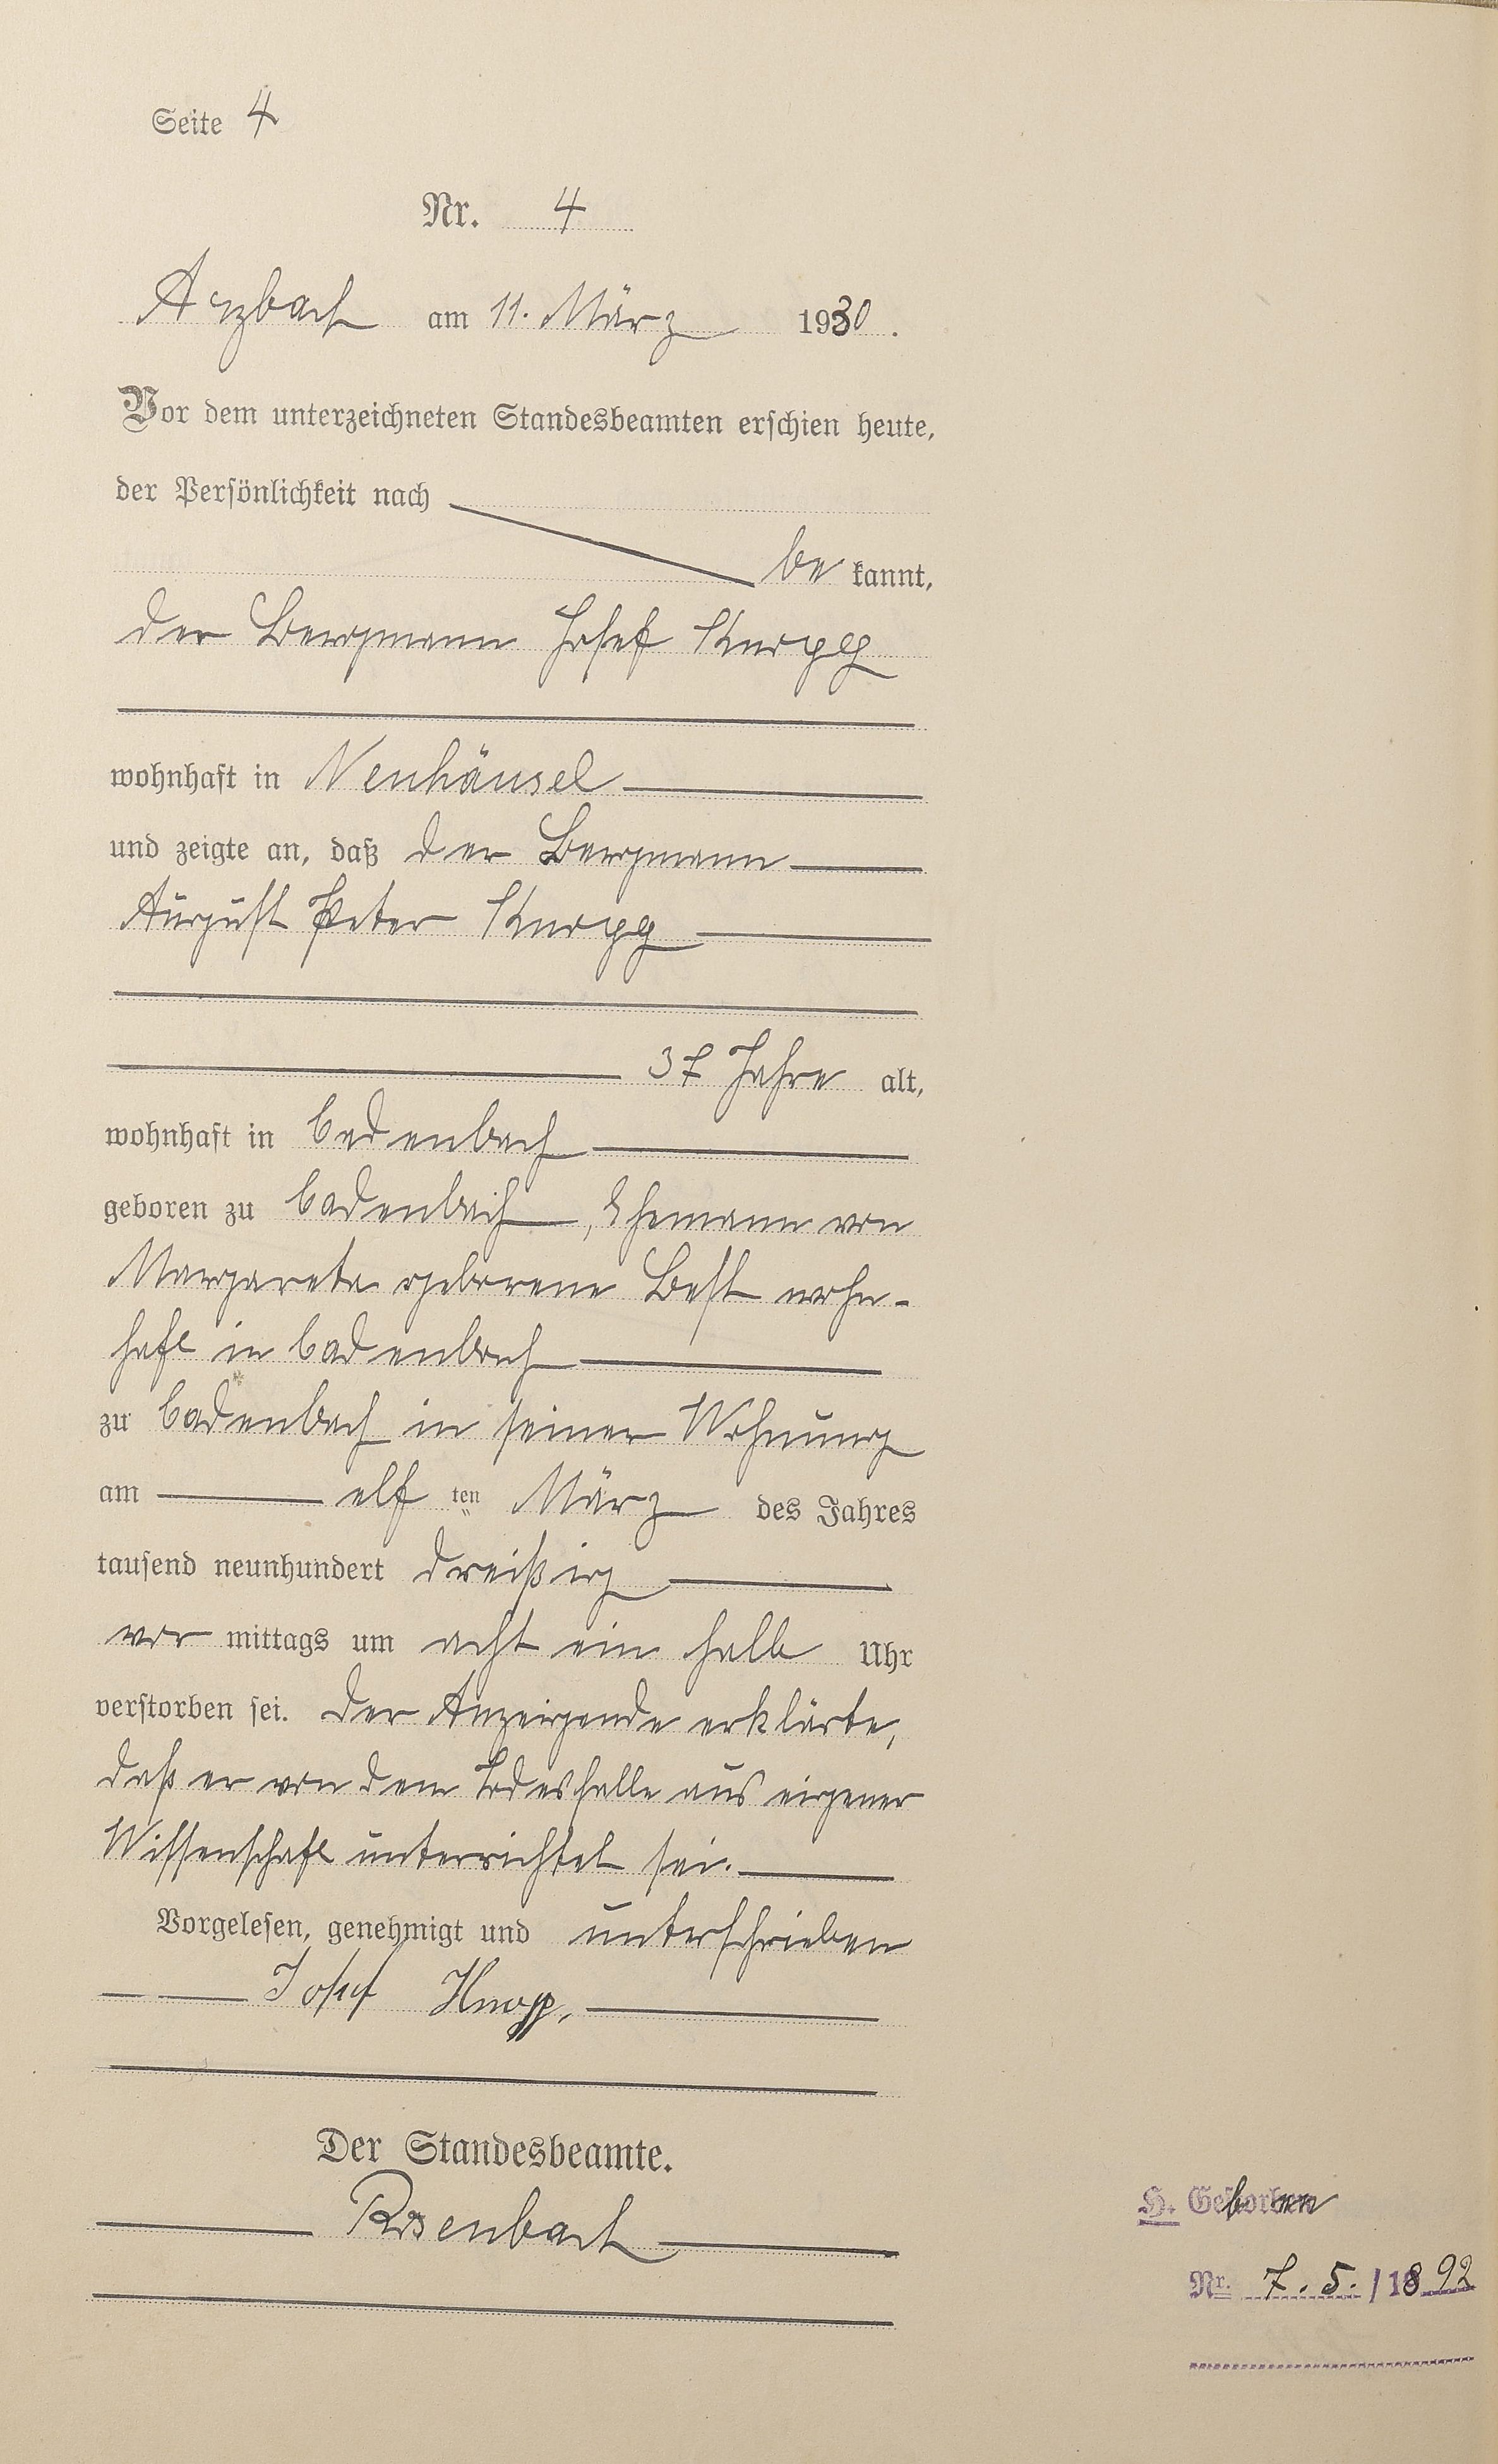 Seite 4
Nr. 4
Arzbach am 11. März 1930.
Vor dem unterzeichneten Standesbeamten erschien heute,
der Persönlichkeit nach
be kannt,
der Bergmann Josef Knopp
wohnhaft in Neuhäusel
und zeigte an, daß der Bergmann
August Peter Knopp
37 Jahre alt,
wohnhaft in Cadenbach
geboren zu Cadenbach, Ehemann von
Margareta geborene Best wohn-
haft in Cadenbach
zu Cadenbach in seiner Wohnung
am elf ten März des Jahres
tausend neunhundert dreißig
vor mittags um acht ein halb Uhr
verstorben sei. Der Anzeigende erklärte,
daß er von dem Todesfalle aus eigener
Wissenschaft unterrichtet sei.
Vorgelesen, genehmigt und unterschrieben
Josef Knopp.
Der Standesbeamte.
Rosenbach
H. Geboren
Nr. 7. 5. / 1892